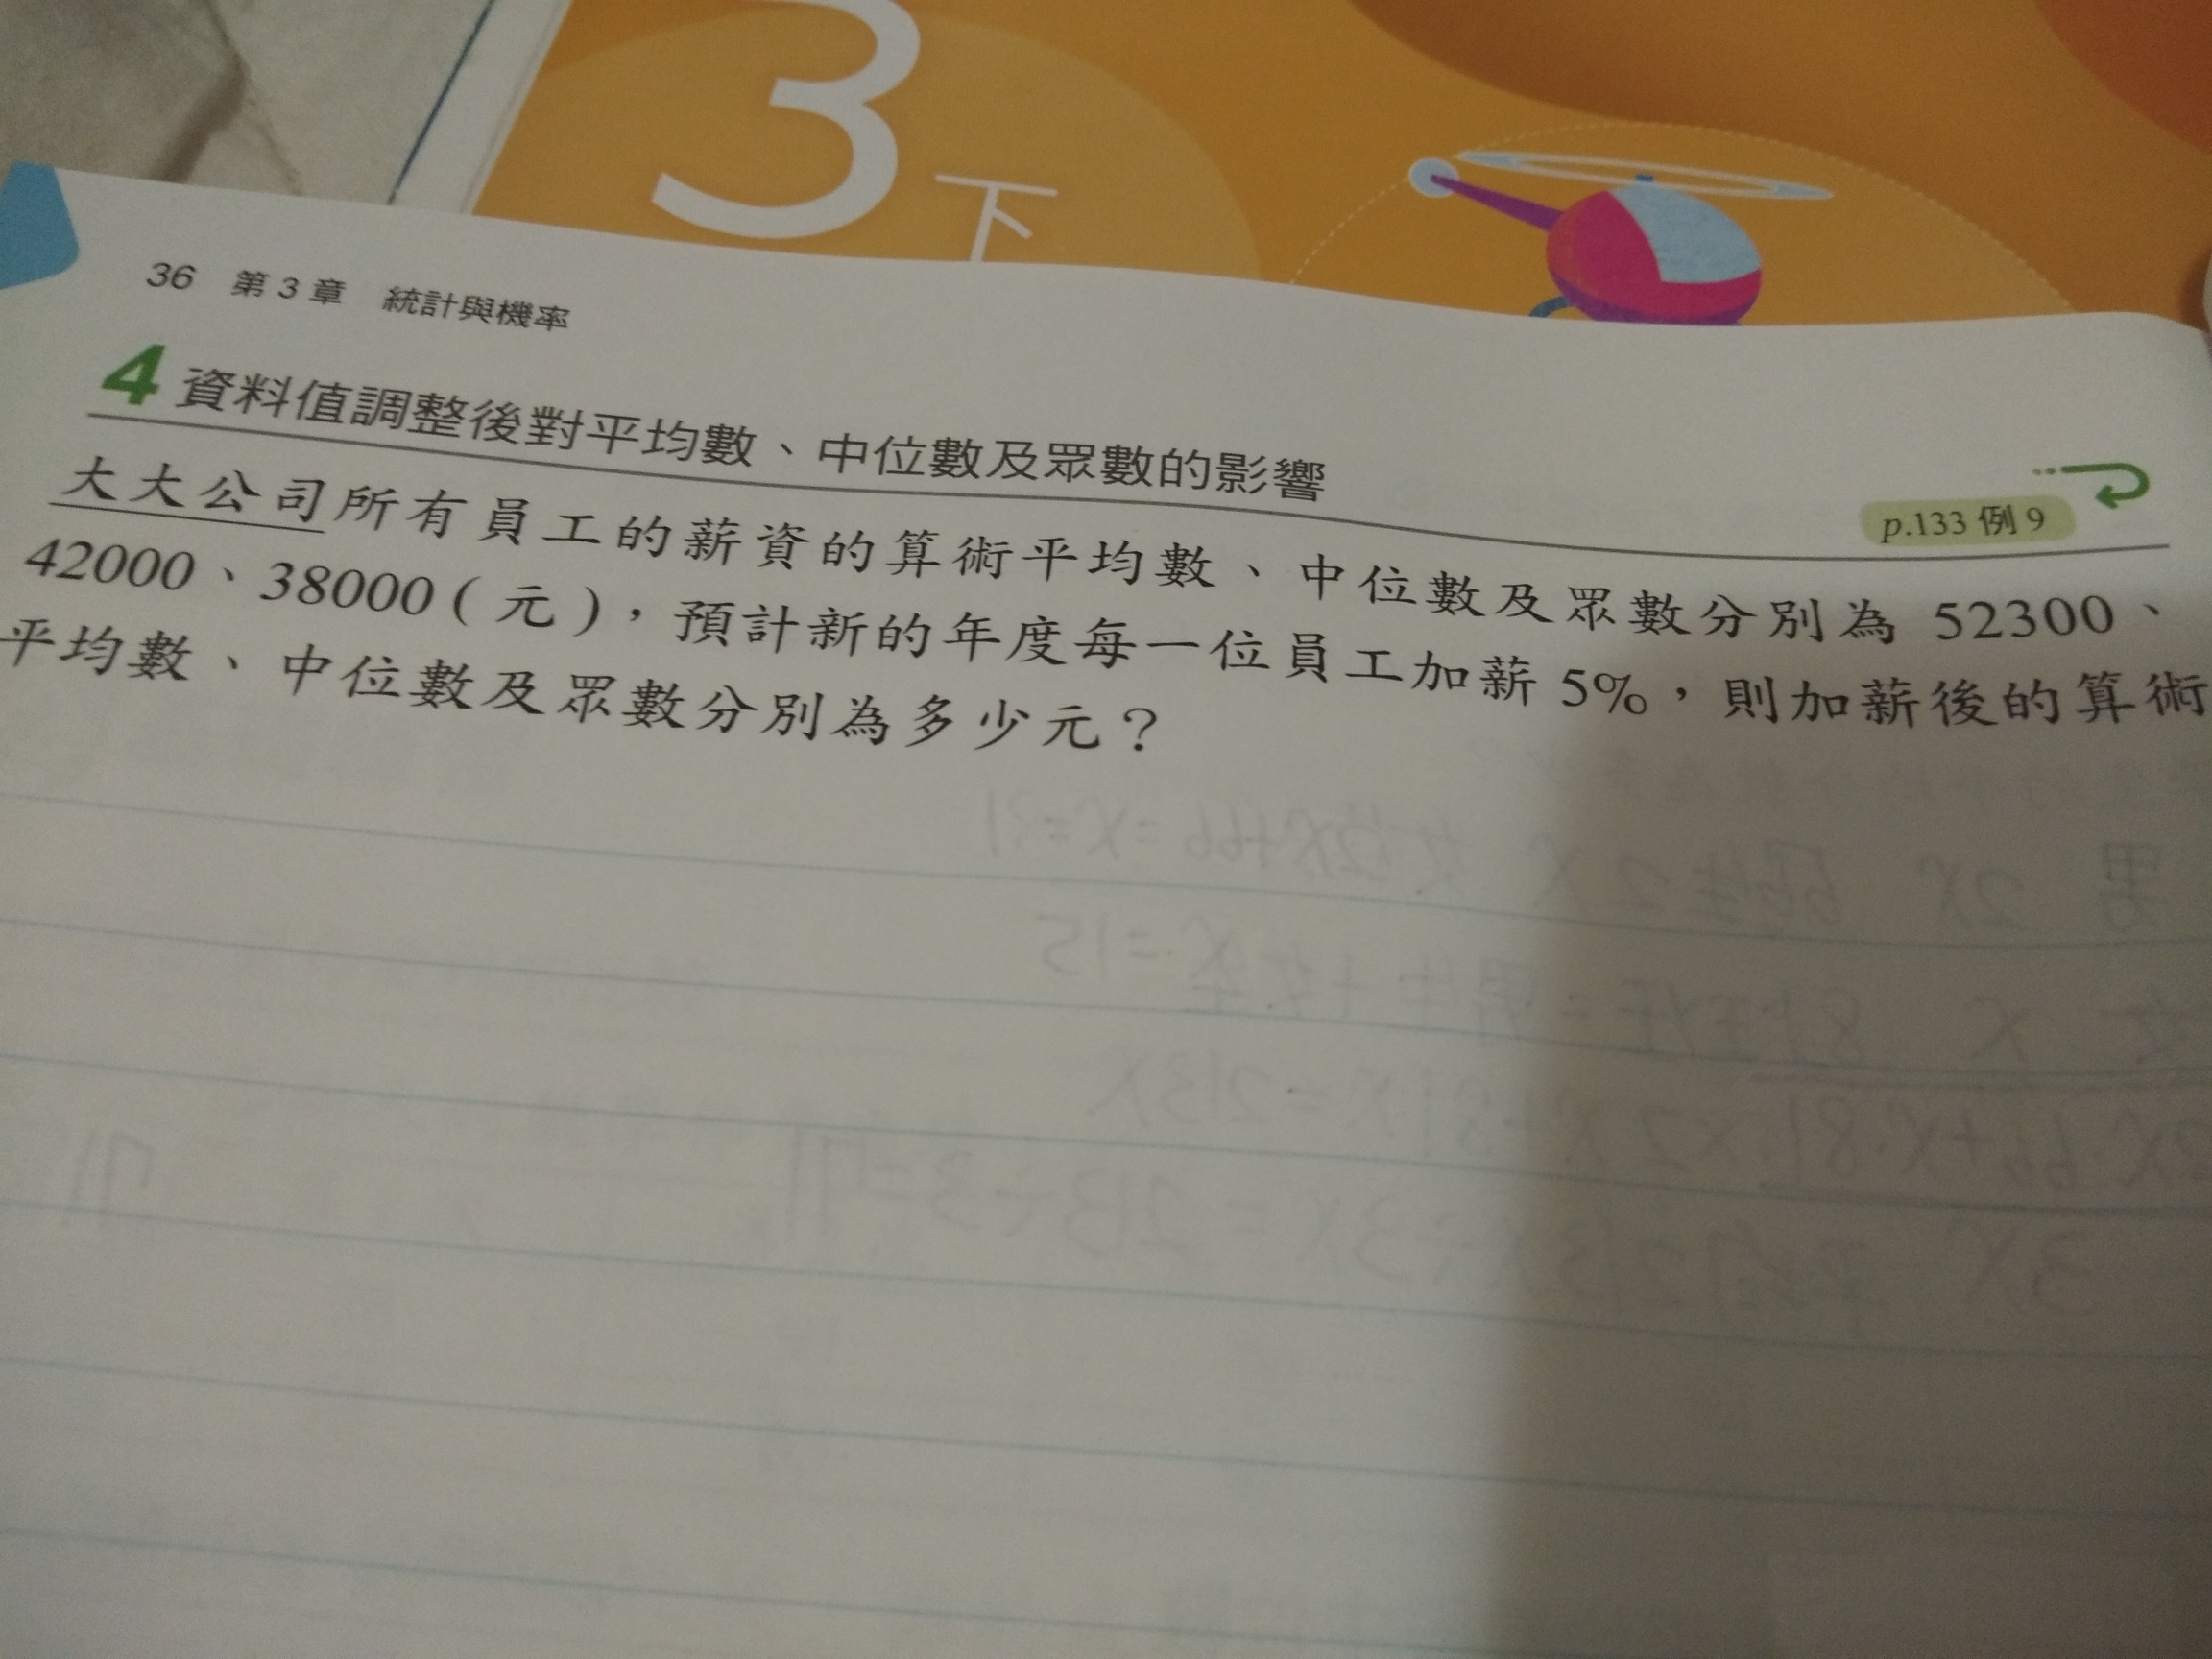 3下
36 第3章 統計與機率
4 資料值調整後對平均數、中位數及眾數的影響
p.133 例 9
大大公司所有員工的薪資的算術平均數、中位數及眾數分別為 52300、
42000、38000(元),預計新的年度每一位員工加薪 5%,則加薪後的算術
平均數、中位數及眾數分別為多少元?